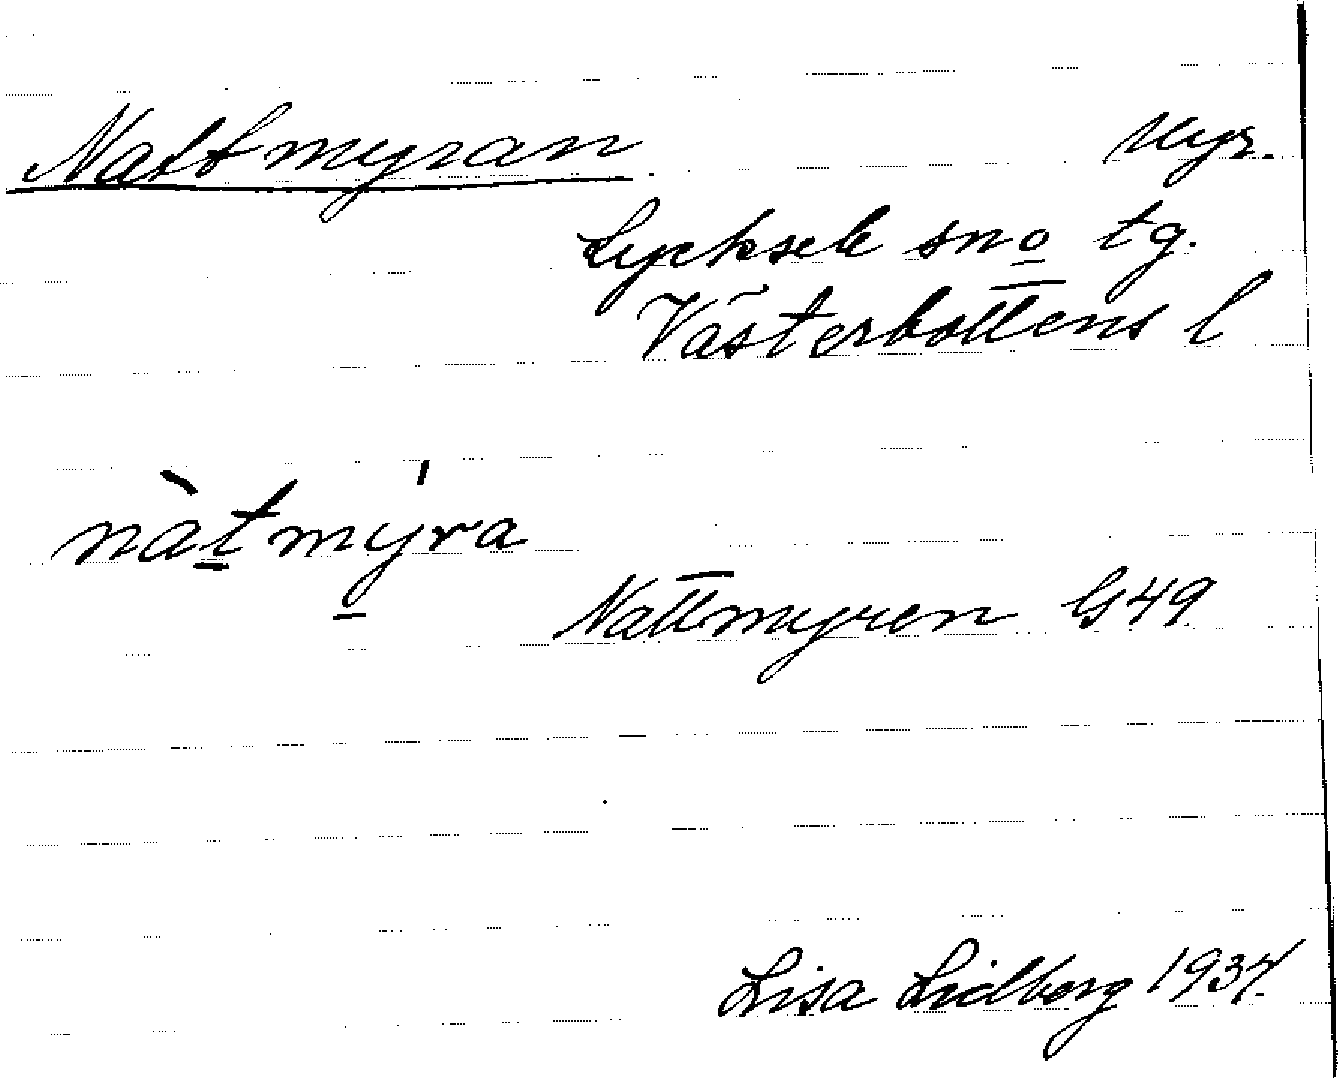 Nattmyran. Myr.
Lycksele sn o tg.
Västerbottens l
nàt̠mýra
Nattmyren G49
Lisa Lidberg 1937.